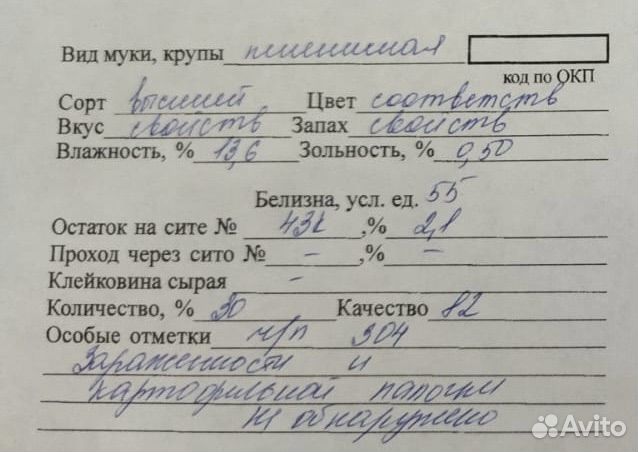 Вид муки, крупы пшеничная
код по ОКП
Сорт высший Цвет соответств
Вкус свойств Запах свойств
Влажность, % 13,6 Зольность, % 0,50
Белизна, усл. ед. 55
Остаток на сите № 43к ,% 2,1
Проход через сито № – ,% –
Клейковина сырая –
Количество, % 30 Качество 82
Особые отметки ч/п 304
Зараженности и
картофельной палочки
не обнаружено
Avito